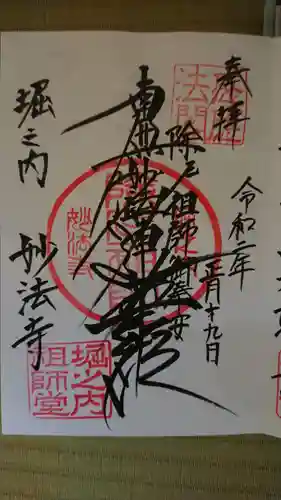 奉拝
令和二年
正月十九日
除厄祖師
南無妙法蓮華経
堀之内 妙法寺
妙法寺
堀之内
祖師堂